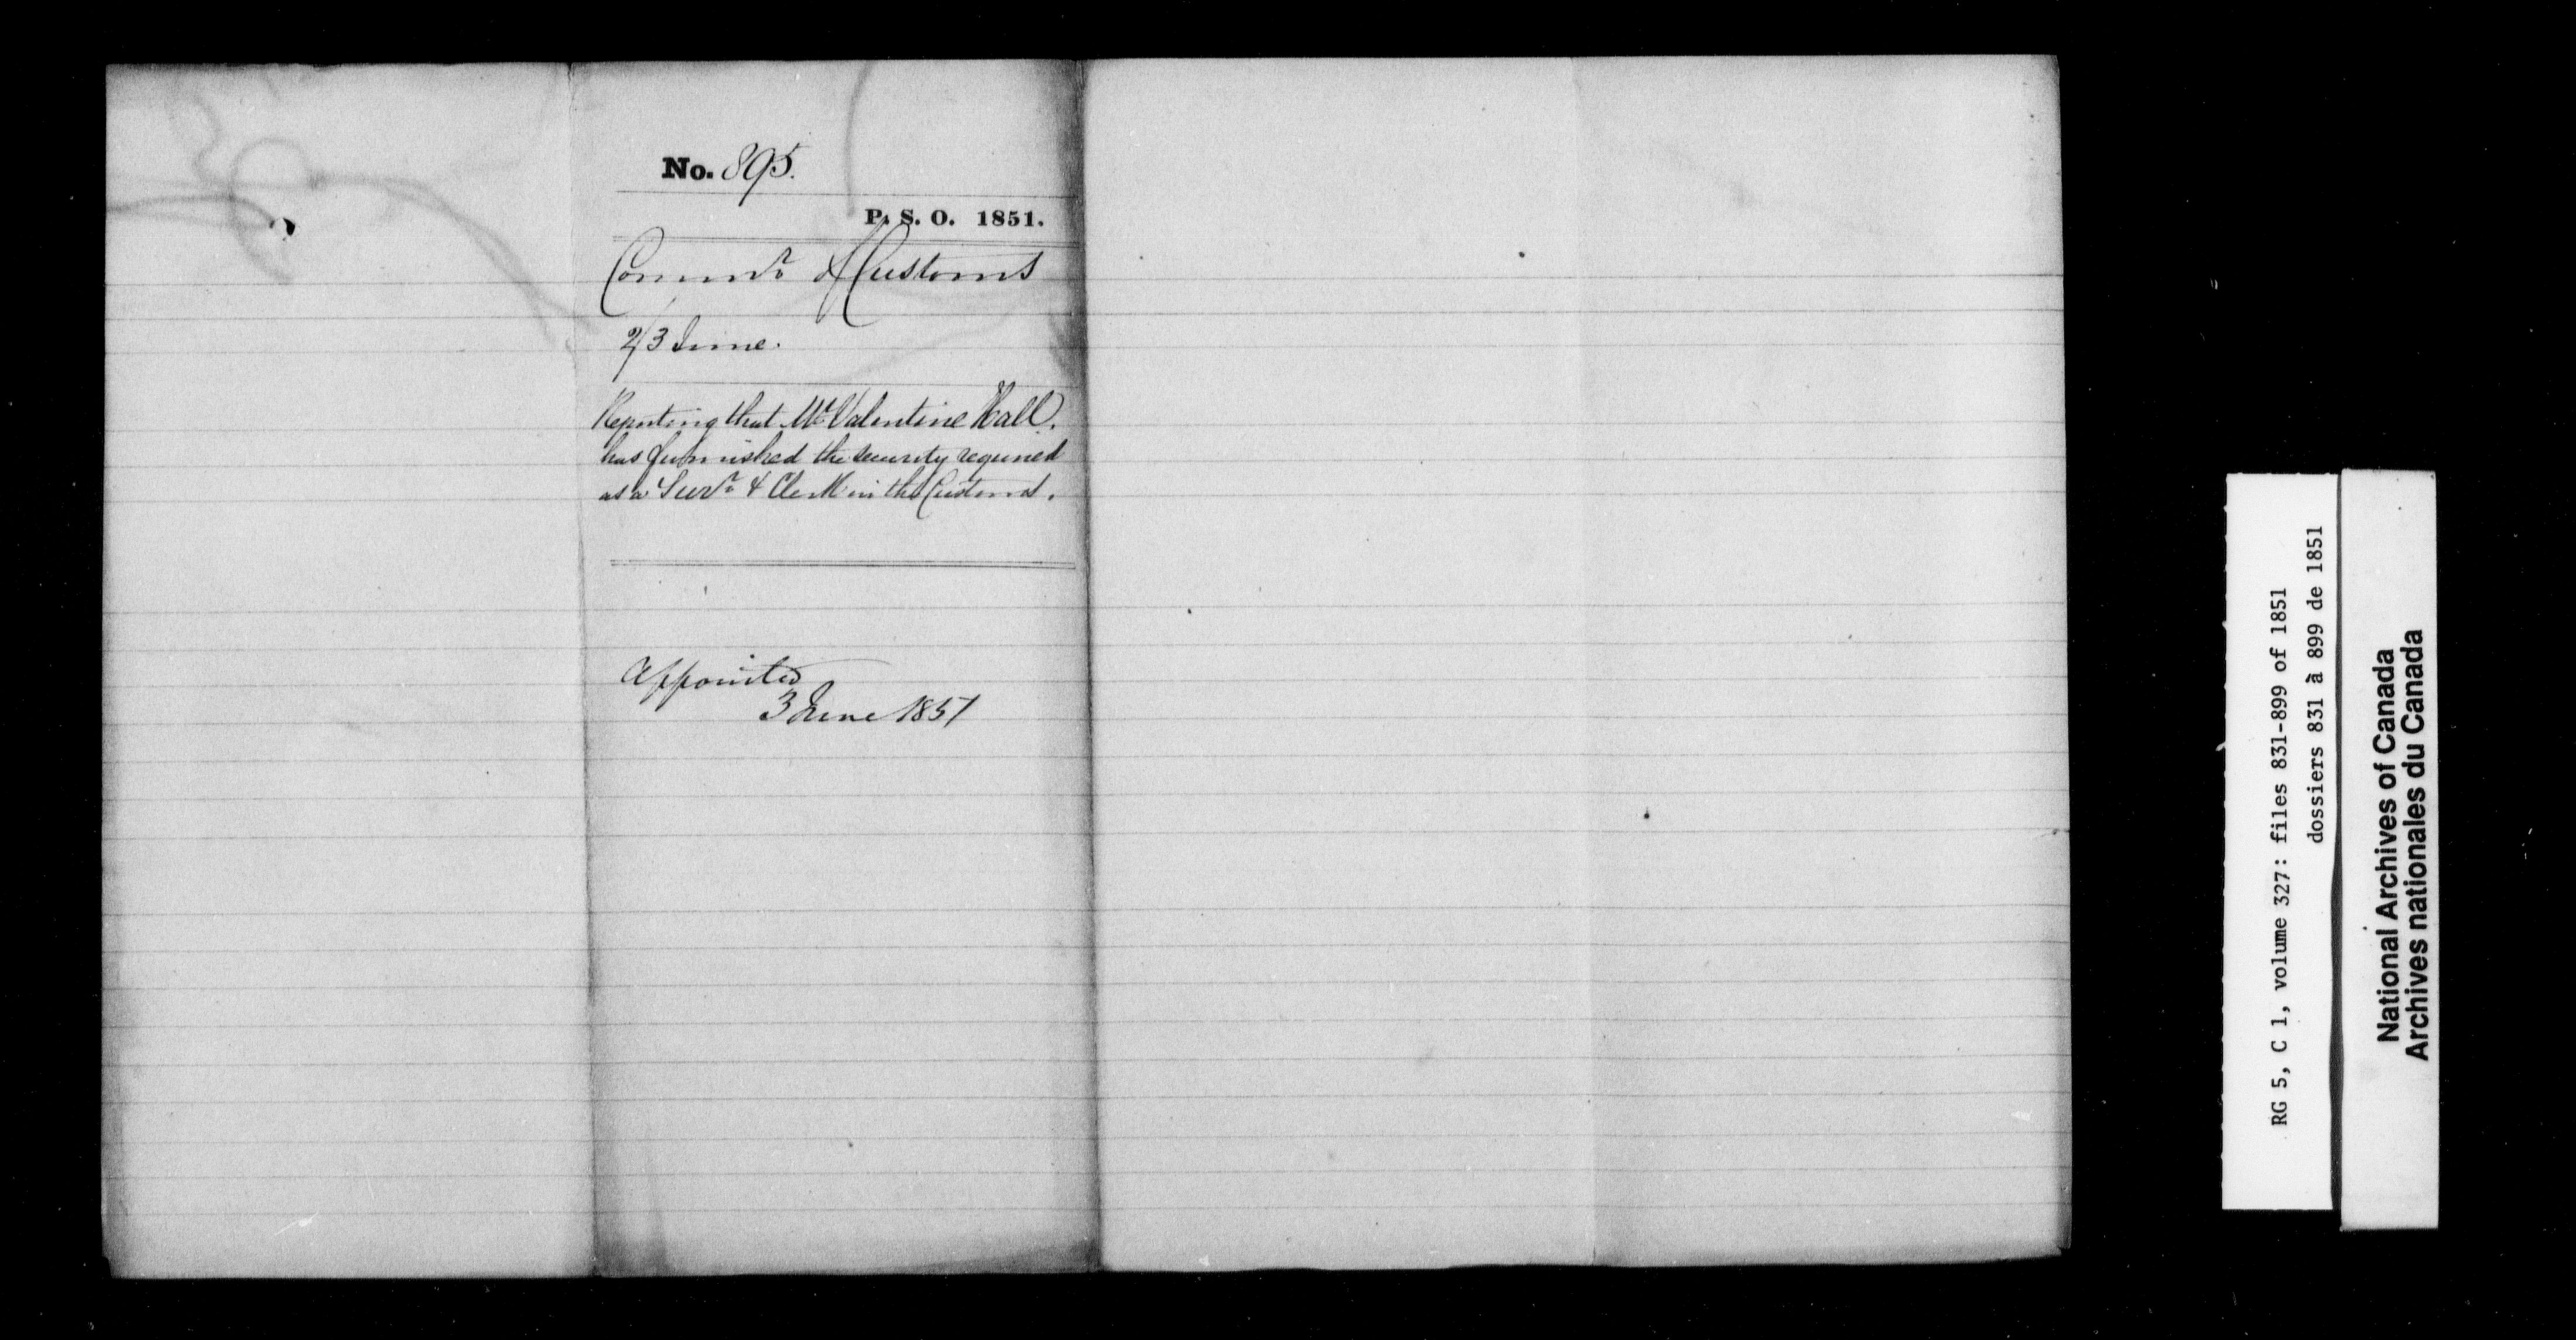 No. 895.
P. S. O. 1851.
Commr of Customs
2/3 June.
Reporting that Mr Valentine Hall.
has furnished the security required
as a Survr & Clerk in the Customs.
Appointed
3 June 1851
RG 5, C 1, volume 327: files 831-899 of 1851
dossiers 831 à 899 de 1851
National Archives of Canada
Archives nationales du Canada